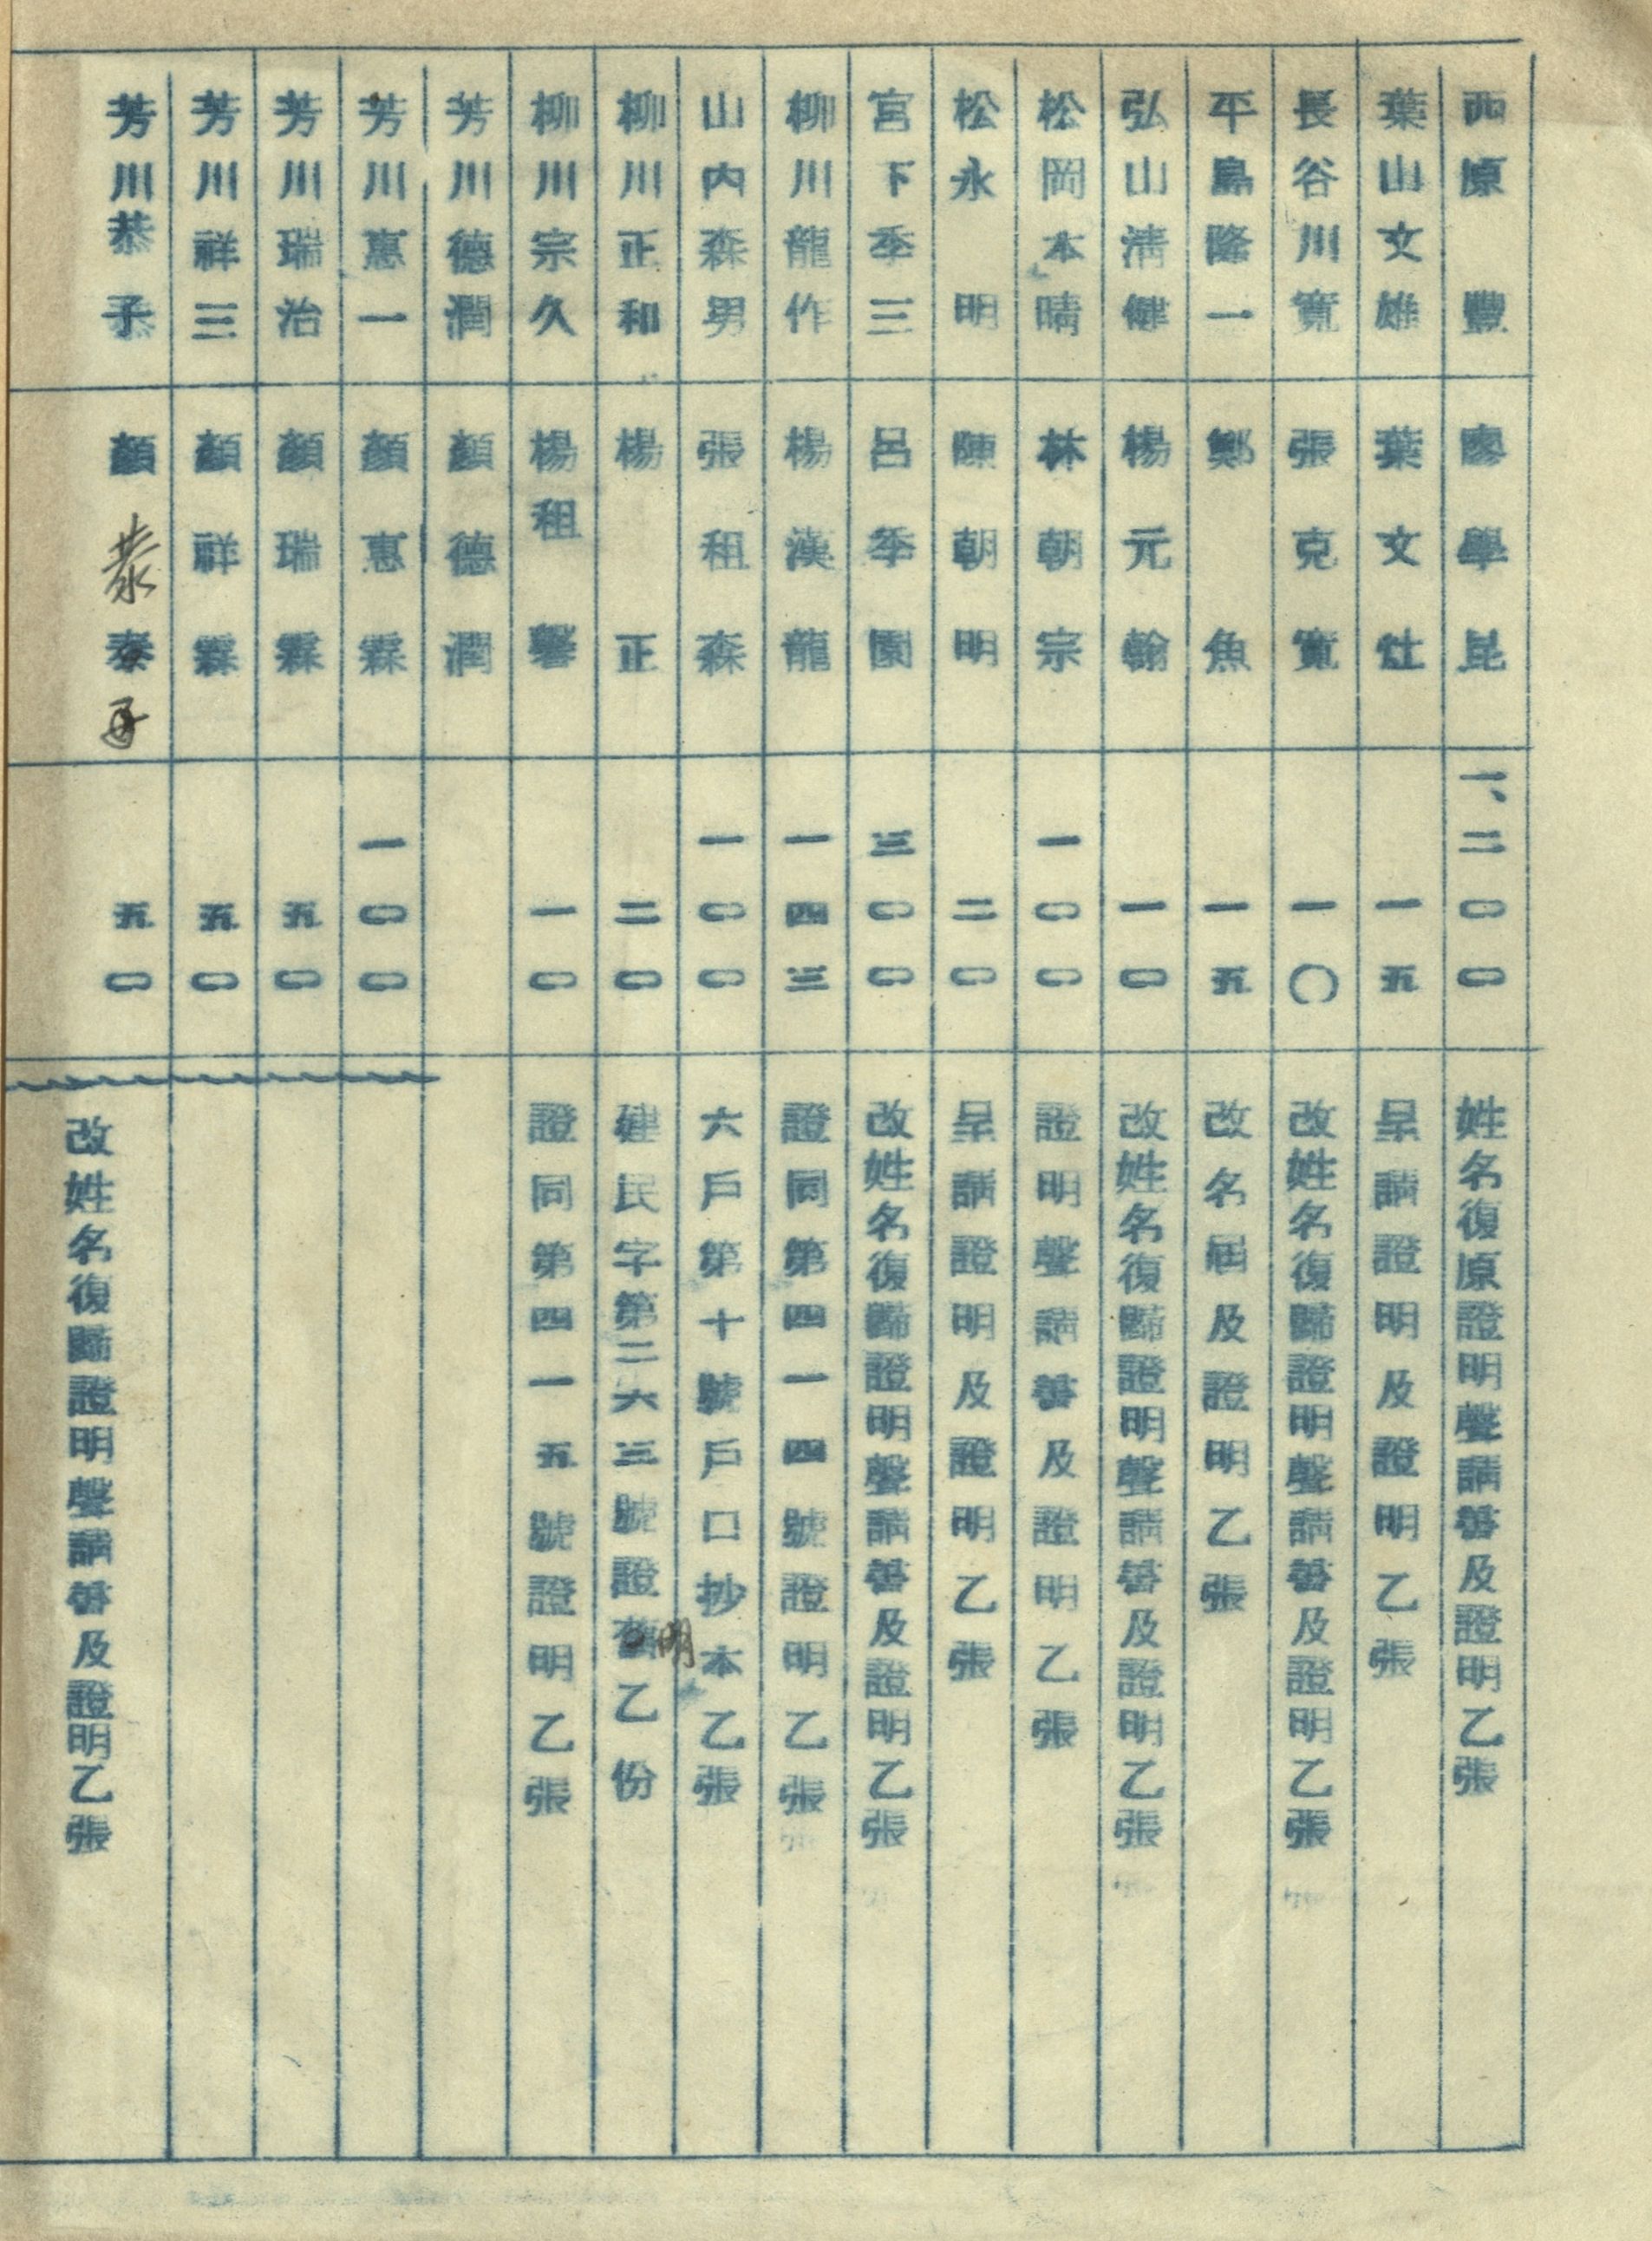 西原豐 廖學昆 一、二〇〇 姓名復原證明聲請書及證明乙張
葉山文雄 葉文灶 一五 呈請證明及證明乙張
長谷川寬 張克寬 一〇 改姓名復歸證明聲請書及證明乙張
平島隆一 鄭魚 一五 改名屆及證明乙張
弘山淸健 楊元翰 一〇 改姓名復歸證明聲請書及證明乙張
松岡本晴 林朝宗 一〇〇 證明聲請書及證明乙張
松永明 陳朝明 二〇 呈請證明及證明乙張
宮下季三 呂季園 三〇〇 改姓名復歸證明聲請書及證明乙張
柳川龍作 楊漢龍 一四三 證同第四一四號證明乙張
山內森男 張租森 一〇〇 六戶第十號戶口抄本乙張
柳川正和 楊正 二〇 建民字第二六三號證明乙份
柳川宗久 楊租馨 一〇 證同第四一五號證明乙張
芳川德潤 顏德潤
芳川惠一 顏惠霖 一〇〇
芳川瑞治 顏瑞霖 五〇
芳川祥三 顏祥霖 五〇
芳川恭子 顏泰 五〇 改姓名復歸證明聲請書及證明乙張